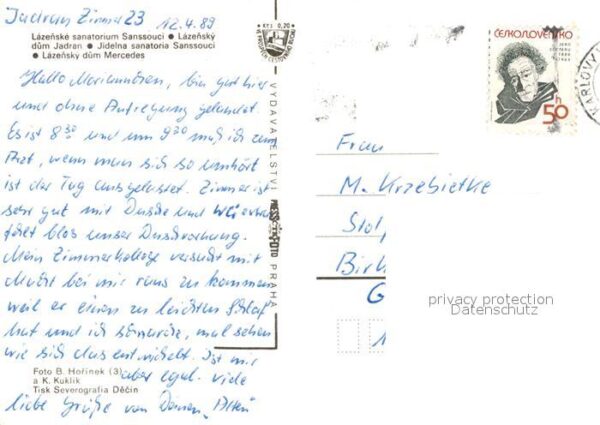 Jadran Zimmer 23
12.4.89
Lázeňské sanatorium Sanssouci ● Lázeňský
dům Jadran ● Jídelna sanatoria Sanssouci
● Lázeňský dům Mercedes
Hallo Mariannchen, bin gut hier
und ohne Aufregung gelandet.
Es ist 8 30 und um 9 30 muß ich zum
Arzt, wenn man sich so umhört
ist der Tag ausgelastet. Zimmer ist
sehr gut mit Dusche und WC
fehlt blos unser Duschvorhang.
Mein Zimmerkollege versucht mit
bei mir raus zu kommen
weil er einen zu leichten Schlaf
hat und ich schnarche, mal sehen
wie sich das entwickelt. Ist mir
aber egal. viele
liebe Grüße von Deinem "Alten"
Foto B. Hořínek (3)
a K. Kuklík
Tisk Severografia Děčín
Kčs 0,20
VYDAVATELSTVÍ PRESSFOTO PRAHA
ČESKOSLOVENSKO
50 h
KARLOVY
Frau
M. Krzebietke
Stol
Birk
G
1
privacy protection
Datenschutz